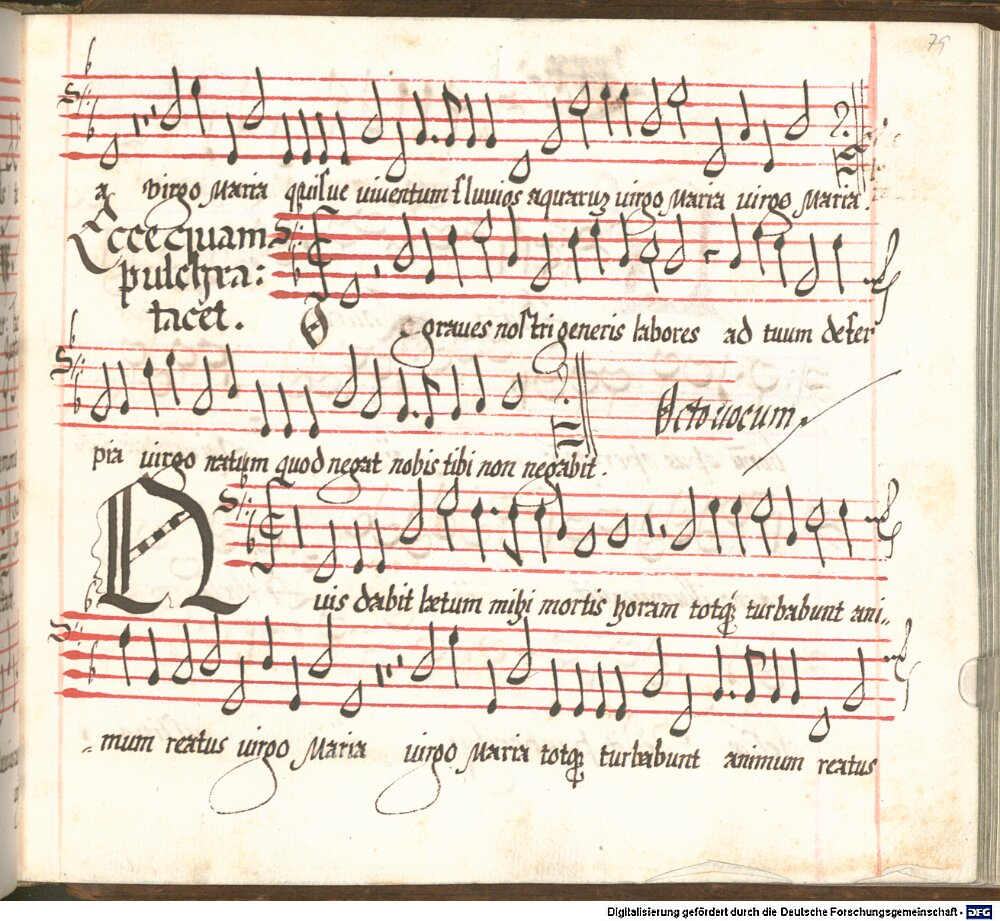 79
a virgo Maria quisue viventum fluvios aquaruʒ virgo Maria virgo Maria.
Ecce quam
pulchra:
tacet.
O graves nostri generis labores ad tuum defer
pia virgo natum quod negat nobis tibi non negabit.
Octo vocum.
Quis dabit letum mihi mortis horam totqꝫ turbabunt ani-
-mum reatus virgo Maria virgo Maria totqꝫ turbabunt animum reatus
Digitalisierung gefördert durch die Deutsche Forschungsgemeinschaft - DFG